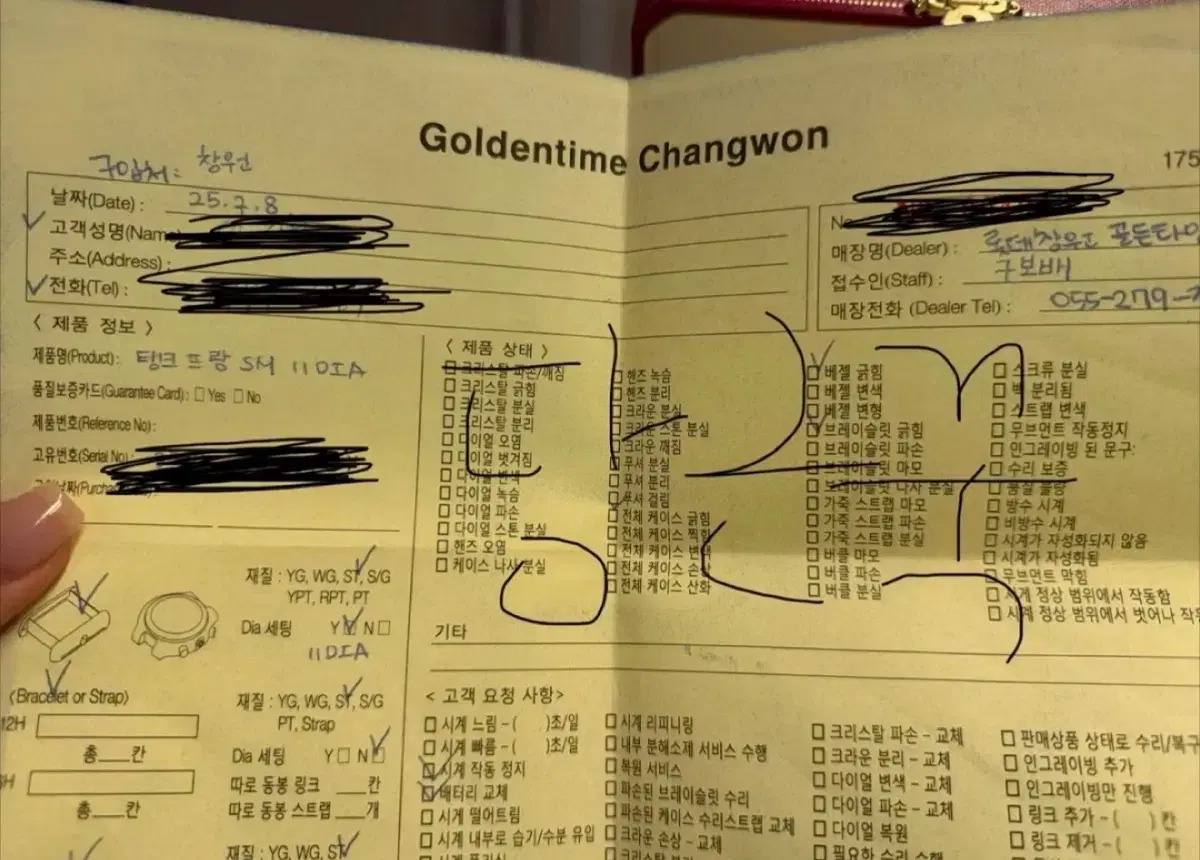 Goldentime Changwon
175
구입처: 창원
날짜(Date) : 25.7.8
고객성명(Name
주소(Address) :
전화(Tel) :
매장명(Dealer) : 롯데창원 골든타임
접수인(Staff) : 구보배
매장전화 (Dealer Tel) : 055-279-
〈 제품 정보 〉
제품명(Product): 탱크 프랑 SM 11DIA
품질보증카드(Guarantee Card) : □ Yes □ No
제품번호(Reference No) :
고유번호(Serial No) :
재질 : YG, WG, ST, S/G
YPT, RPT, PT
Dia 세팅 Y□ N□
11DIA
〈Bracelet or Strap〉
12H
총___칸
총___칸
재질 : YG, WG, ST, S/G
PT, Strap
Dia 세팅 Y□ N□
따로 동봉 링크 ___칸
따로 동봉 스트랩 ___개
재질 : YG, WG, ST
〈 제품 상태 〉
□ 크리스탈 파손/깨짐
□ 크리스탈 긁힘
□ 크리스탈 분실
□ 크리스탈 분리
□ 다이얼 오염
□ 다이얼 벗겨짐
□ 다이얼 변색
□ 다이얼 녹슴
□ 다이얼 파손
□ 다이얼 스톤 분실
□ 핸즈 오염
□ 케이스 나사 분실
□ 핸즈 녹슴
□ 핸즈 분리
□ 크라운 분실
□ 크라운 스톤 분실
□ 크라운 깨짐
□ 푸셔 분실
□ 푸셔 분리
□ 푸셔 걸림
□ 전체 케이스 긁힘
□ 전체 케이스 찍힘
□ 전체 케이스 변색
□ 전체 케이스 손상
□ 전체 케이스 산화
□ 베젤 긁힘
□ 베젤 변색
□ 베젤 변형
□ 브레이슬릿 긁힘
□ 브레이슬릿 파손
□ 브레이슬릿 마모
□ 브레이슬릿 나사 분실
□ 가죽 스트랩 마모
□ 가죽 스트랩 파손
□ 가죽 스트랩 분실
□ 버클 마모
□ 버클 파손
□ 버클 분실
□ 스크류 분실
□ 백 분리됨
□ 스트랩 변색
□ 무브먼트 작동정지
□ 인그레이빙 된 문구:
□ 수리 보증
□ 품질 불량
□ 방수 시계
□ 비방수 시계
□ 시계가 자성화되지 않음
□ 시계가 자성화됨
□ 무브먼트 막힘
□ 시계 정상 범위에서 작동함
□ 시계 정상 범위에서 벗어나 작동
기타
< 고객 요청 사항>
□ 시계 느림 – ( )초/일
□ 시계 빠름 – ( )초/일
□ 시계 작동 정지
□ 배터리 교체
□ 시계 떨어트림
□ 시계 내부로 습기/수분 유입
□ 시계 리피니링
□ 내부 분해소제 서비스 수행
□ 복원 서비스
□ 파손된 브레이슬릿 수리
□ 파손된 케이스 수리스트랩 교체
□ 크라운 손상 – 교체
□ 크리스탈 파손 – 교체
□ 크라운 분리 – 교체
□ 다이얼 변색 – 교체
□ 다이얼 파손 – 교체
□ 다이얼 복원
□ 필요한 수리 수행
□ 판매상품 상태로 수리/복구
□ 인그레이빙 추가
□ 인그레이빙만 진행
□ 링크 추가 – ( )칸
□ 링크 제거 – ( )칸